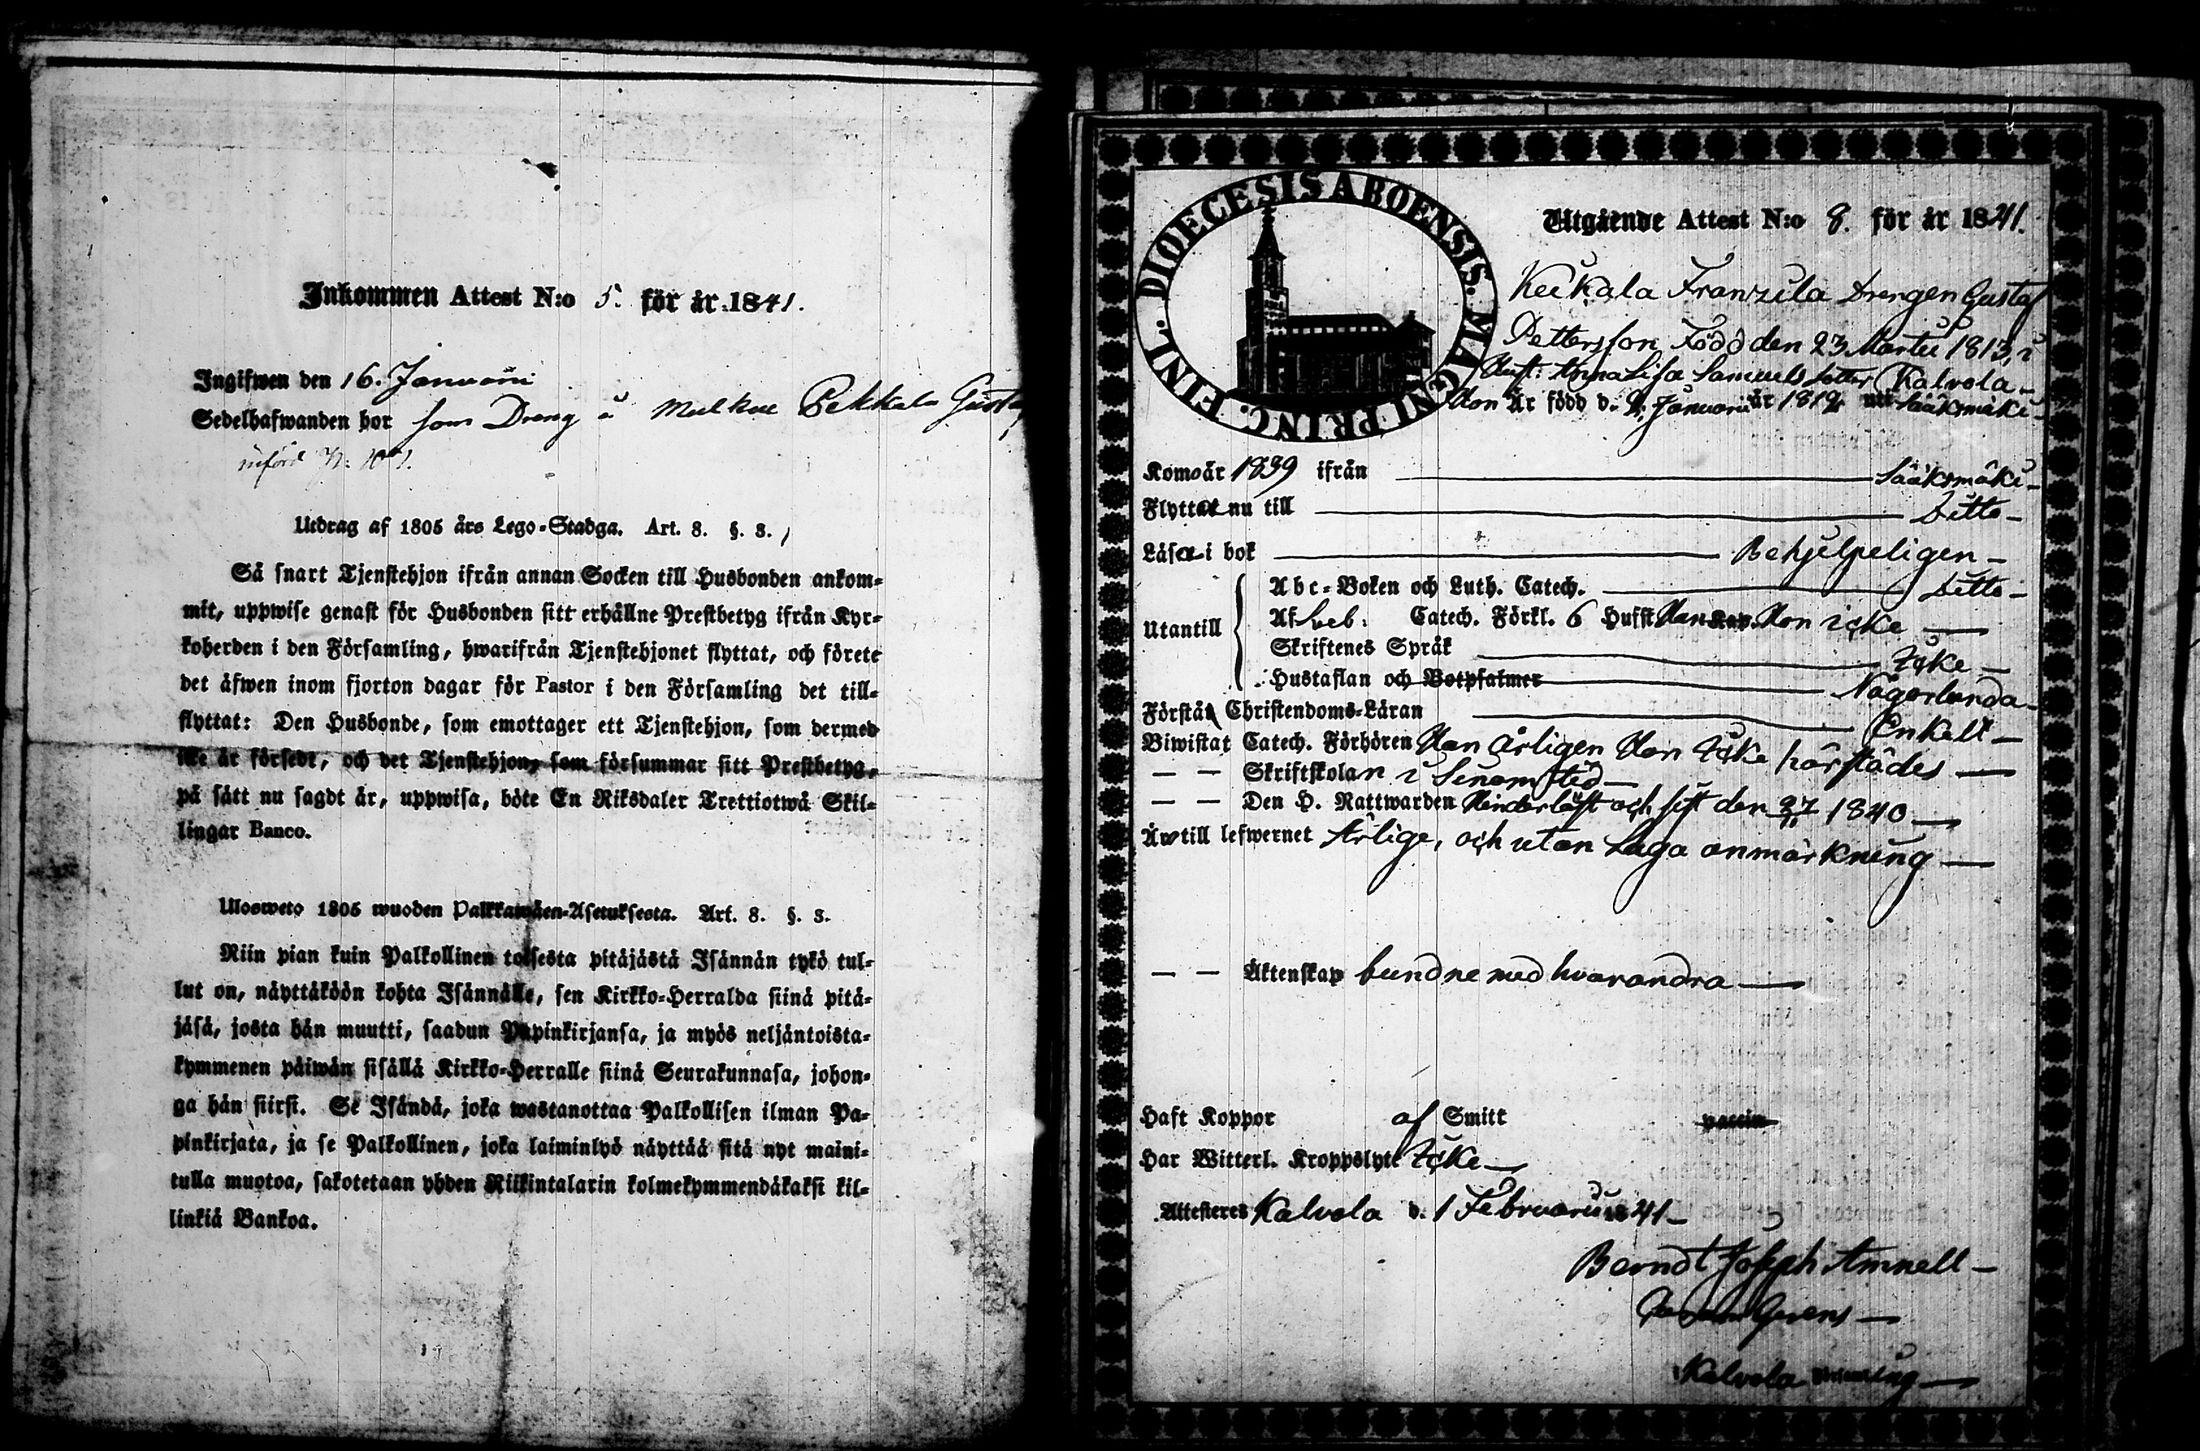 Inkommen Attest N:o 5. för år 1841.
Ingifwen den 16. Januari
Sedelhafwanden bor som Dreng å Pekkala Gustaf
införd
Utdrag af 1805 års Lego-Stadga. Art. 8. §. 3.
Så snart Tjenstehjon ifrån annan Socken till Husbonden ankom-
mit, uppwise genast för Husbonden sitt erhållne Prestbetyg ifrån Kyr-
koherden i den Församling, hwarifrån Tjenstehjonet flyttat, och förete
det äfwen inom fjorton dagar för Pastor i den Församling det till-
flyttat: Den Husbonde, som emottager ett Tjenstehjon, som dermed
icke är försedt, och det Tjenstehjon, som försummar sitt Prestbetyg,
på sätt nu sagdt är, uppwisa, böte En Riksdaler Trettiotwå Skil-
lingar Banco.
Ulosweto 1805 wuoden Palkkawäen-Asetuksesta. Art. 8. §. 3.
Niin pian kuin Palkollinen toisesta pitäjästä Isännän tykö tul-
lut on, näyttäköön kohta Isännälle, sen Kirkko-Herralda siinä pitä-
jäsä, josta hän muutti, saadun Papinkirjansa, ja myös neljäntoista-
kymmenen päiwän sisällä Kirkko-Herralle siinä Seurakunnasa, johon-
ga hän siirsi. Se Isändä, joka wastanottaa Palkollisen ilman Pa-
pinkirjata, ja se Palkollinen, joka laiminlyö näyttää sitä nyt maini-
tulla muotoa, sakotetaan yhden Riikintalarin kolmekymmendäkaksi kil-
linkiä Bankoa.
DIOECESIS ABOENSIS. MAGNI PRINC. FINL.
Utgående Attest N:o 8. för år 1841.
Keikala Franzila Drengen Gustaf
Pettersson, Född den 23 Martii 1813, i
Hust: Anna Lisa Samuels dotter Kalvola
Hon Är född d. Januarii år 1819 uti Sääksmäki
Kom år 1839 ifrån Sääksmäki
Flyttat nu till Ditto
Läsa i bok Behjelpeligen
Abc-Boken och Luth. Catech. Ditto
Utantill Af Sveb: Catech. Förkl. 6 Hufst Han Kap. Hon icke
Skriftenes Språk Icke
Hustaflan och Botpsalmer Någorlunda
Förstå Christendoms-Läran Enkelt
Biwistat Catech. Förhören Han årligen Hon Icke härstädes
— — Skriftskolan i Senom stid
— — Den H. Nattwarden Hinderlöst och sist den 1840
Äro till lefwernet Ärlige, och utan Laga anmärkning
— — Äktenskap bundne med hvarandra
Haft Koppor af Smitt vaccin
Har Witterl. Kroppslyte Icke
Attesteres Kalvola d. 1 Februarii 1841
Berndt Joseph Amnell
Kalvola Församling